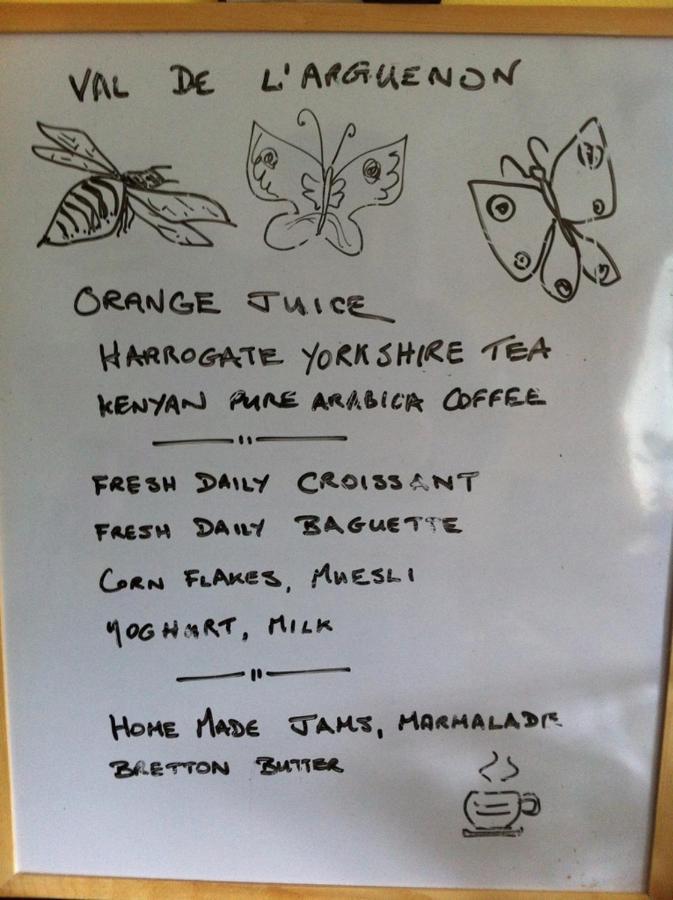 VAL DE L'ARGUENON
ORANGE JUICE
HARROGATE YORKSHIRE TEA
KENYAN PURE ARABICA COFFEE
FRESH DAILY CROISSANT
FRESH DAILY BAGUETTE
CORN FLAKES, MUESLI
YOGHURT, MILK
HOME MADE JAMS, MARMALADE
BRETTON BUTTER